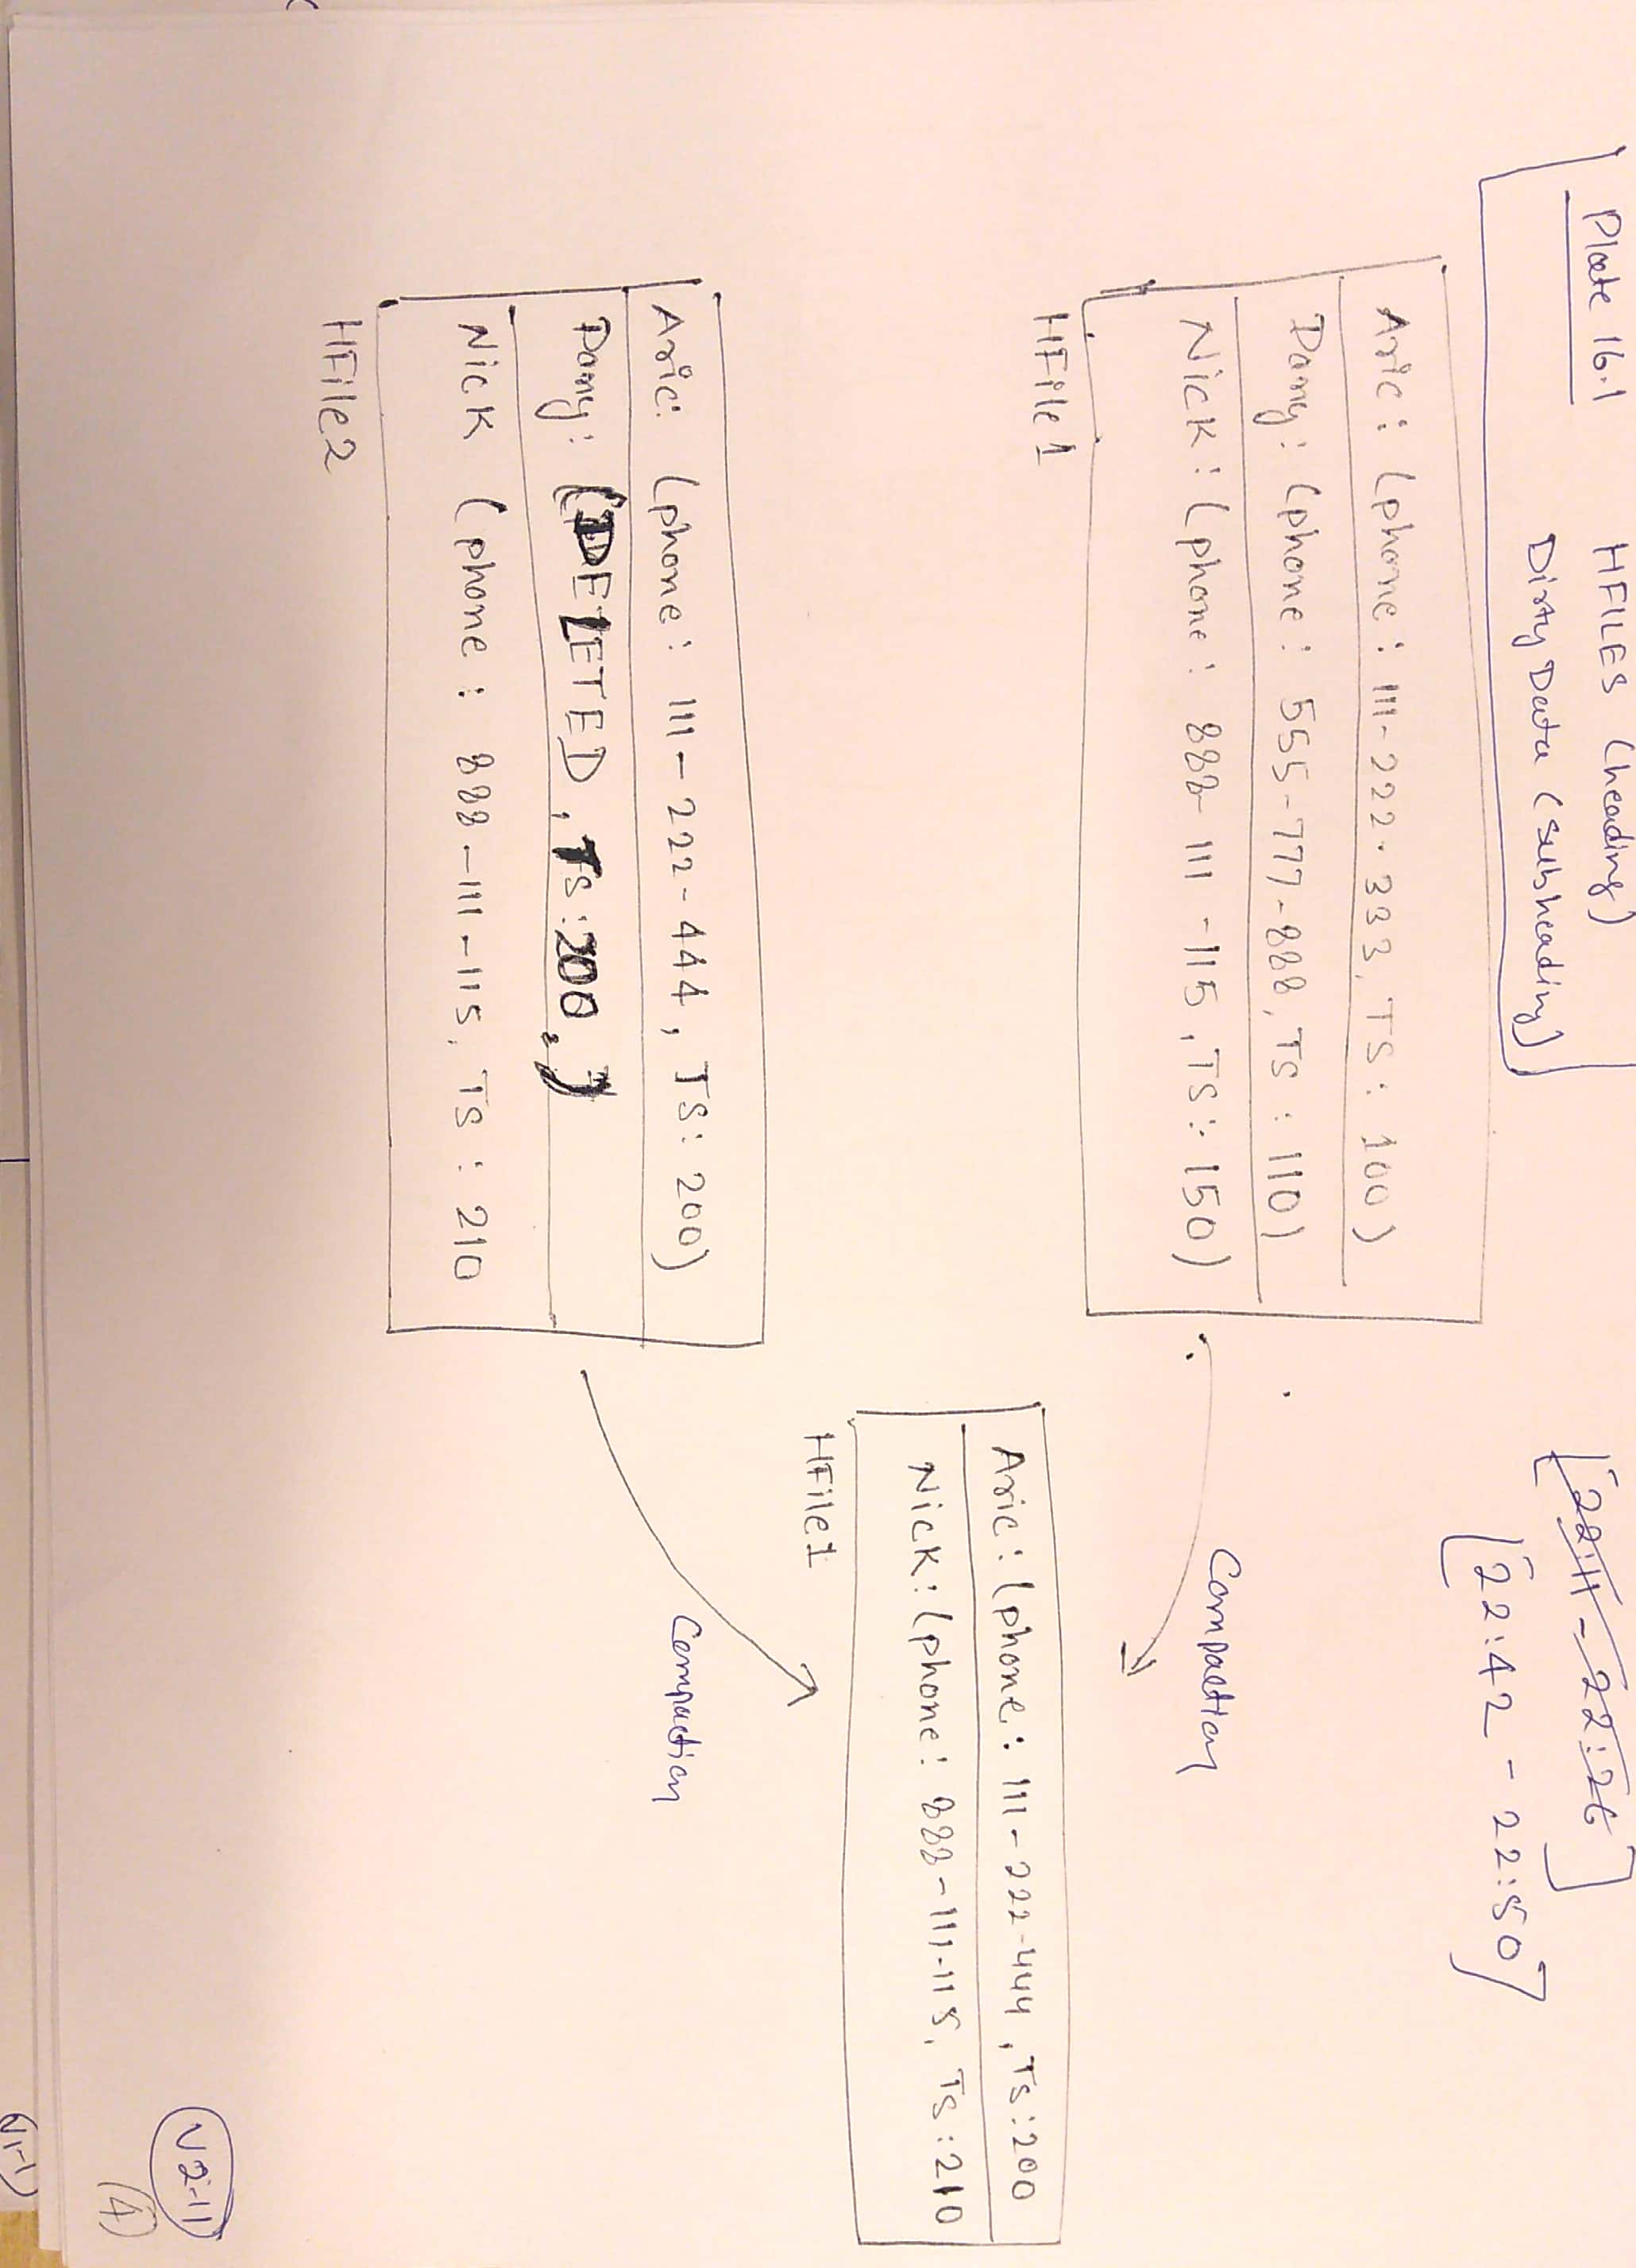 Plate 16.1 HFILES (heading)
Dirty Data (subheading)
[22:11 - 22:26]
[22:42 - 22:50]
Aric: (phone: 111-222-333, TS: 100)
Dany: (phone: 555-777-888, TS: 110)
Nick: (phone: 888-111-115, TS: 150)
HFile 1
Compaction
Aric: (phone: 111-222-444, TS:200
Nick: (phone: 888-111-115, TS:210
HFile1
Aric: (phone: 111-222-444, TS: 200)
Dany: (DELETED, TS:200,)
Nick (phone: 888-111-115, TS: 210
HFile2
Compaction
V2-11
(4)
V1-1